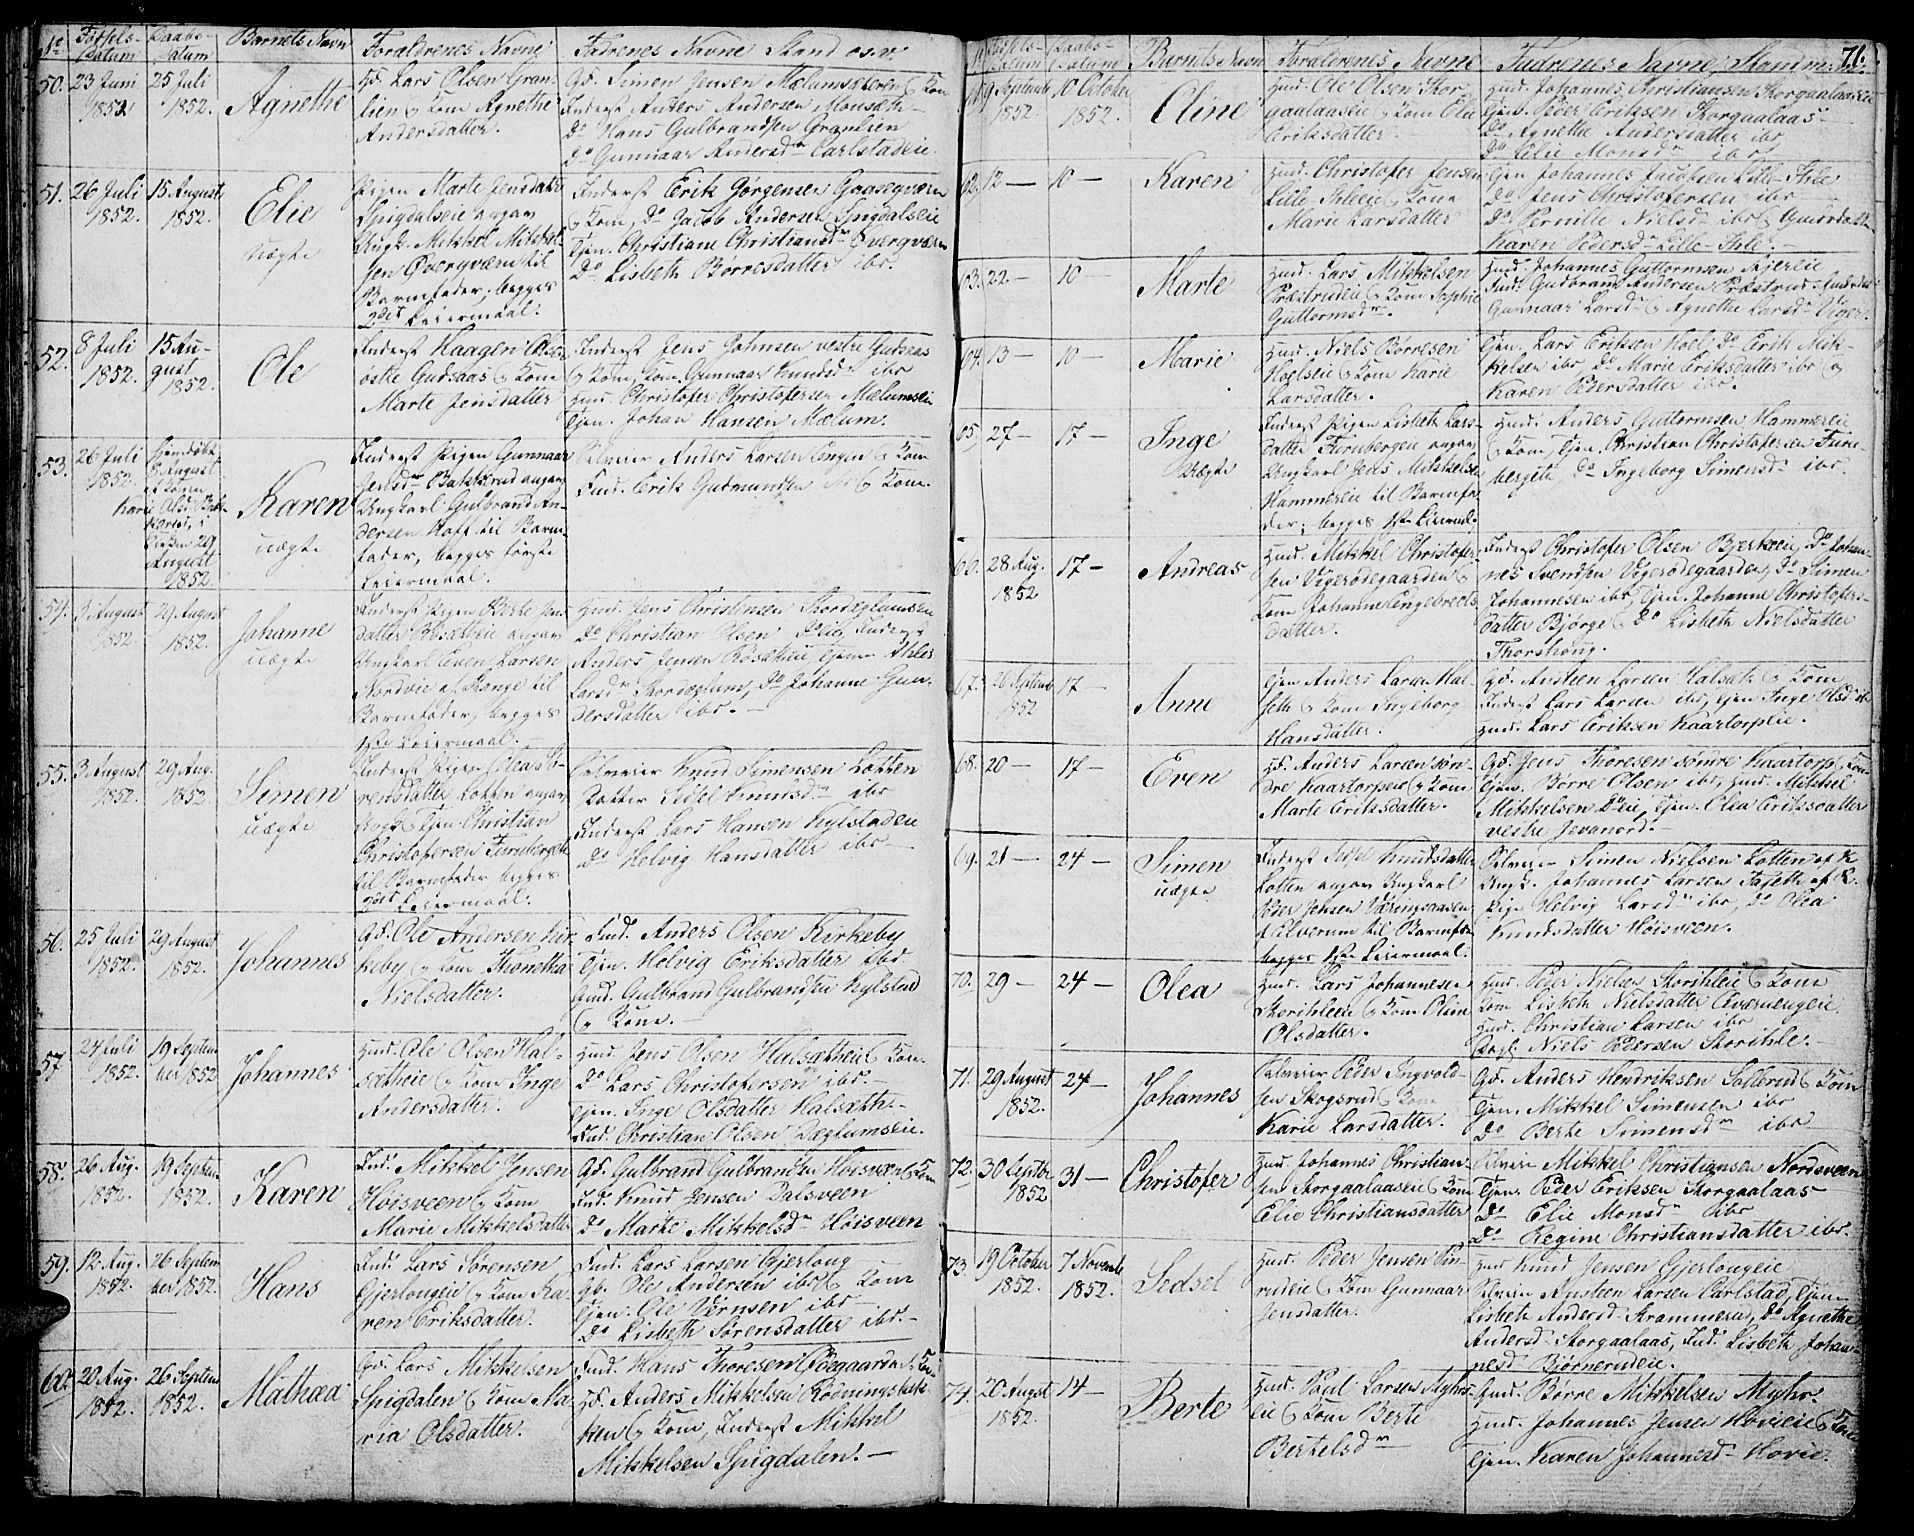 No Fødsels- Daabs- Barnets Navn Forældrenes Navne Fadrenes Navne Stand osv.
Datum Datum
50. 23 Juni 1852. 25 Juli 1852. Agnethe
Gd. Lars Olsen Gran-
lien & Kone Agnethe
Andersdatter.
Gd. Simen Jensen Mælumsæteren & Kone
Inderst Anders Andersen Monsæth
Do Hans Gulbrandsen Granlien
Do Gunnaar Andersdr Carlstadeie.
51. 26 Juli 1852. 15 Augusti 1852. Elie
uægte
Pigen Marte Jensdatter
Spigdalseie angav
Ungk. Mikkel Mikkel-
sen Øvergværn til
Barnefader, begges
2det Leiermaal.
Inderst Erik Gørgensen Gaasegværn
& Kone, Do Jacob Andersen Spigdalseie
Tjen. Christiane Christiansdr Øvergværn
Do Lisbeth Børresdatter ibr.
52. 8 Juli 1852. 15 Au-
gust 1852. Ole
Inderst Haagen Olsen
østre Gudsaas & Kone
Marte Jensdatter
Inderst Jens Johnsen vestre Gudsaas
& Kone, Kone Gunnaar Knudsdr ibr
Huusm. Christofer Christofersen Mælumseie
Tjen. Johan Hansen Mælum.
53. 26 Juli 1852. Hjemdøbt
8 August
af Konen
Karie Olsdr
i
Kirken 29
August
1852. Karen
uægte
Inderst Pigen Gunnaar
Jensdr Bakkerud angav
Ungkarl Gulbrand An-
dersen Hoff til Barne-
fader, begges første
Leiermaal.
Selveier Anders Larsen Engen & Kone
Ind. Erik Gudmundsen & Kone.
54. 3 August 1852. 29 August 1852. Johanne
uægte
Inderst Pigen Berte Jens-
datter angav
Ungkarl Even Larsen
Nordvie af Stange til
Barnefader, begges
1ste Leiermaal.
Huusm. Jens Christensen
Do Christian Olsen Do eie, Inderst
Anders Jensen
Larsdr Do Johanne Gun-
dersdatter ibr.
55. 3 August 1852. 29 Aug. 1852. Simen
uægte
Inderst Pigen Olea Sø-
rensdatter Lotten angav
Ungk. Tjen. Christian
Christofersen Furuberget
til Barnefader, begges
2det Leiermaal.
Selveier Knud Simensen Lotten
Datter Sedsel Knudsdr ibr
Inderst Lars Hansen Kylstadeie
Do Helvig Hansdatter ibr
56. 25 Juli 1852. 29 August 1852. Johannes
Gd. Ole Andersen Kir-
keby & Kone Thonetha
Nielsdatter.
Ind. Anders Olsen Kirkeby
Tjen. Helvig Eriksdatter ibr.
Gd. Gulbrand Gulbrandsen Kylstad
& Kone.
57. 24 Juli 1852. 19 Septem-
ber 1852 Johannes
Huusm. Ole Olsen Hal-
sætheie & Kone Inge
Andersdatter.
Huusm. Jens Olsen Halsætheie & Kone.
Do Lars Christofersen ibr.
Tjen. Inge Olsdatter Halsæth.
Ind. Christian Olsen Dæglumseie.
58. 26 Aug. 1852. 19 Septem 1852. Karen
Ind. Mikkel Jensen
Høisveen & Kone
Marie Mikkelsdatter
Gd. Gulbrand Gulbrandsen Høisveen & Kone
Ind. Knud Jensen Dalsveen
Do Marte Mikkelsdr Høisveen
59. 12 Aug. 1852. 26 Septem
ber 1852. Hans
Ind. Lars Sørensen
Gjerlougeie & Kone Ka-
ren Eriksdatter.
Ind. Lars Larsen Gjerloug
Gd. Ole Andersen ibr & Kone
Tjen. Ole Børresen ibr
Do Lisbeth Sørensdatter ibr.
60. 20 Aug. 1852. 26 Septem 1852. Mathea
Gd. Lars Mikkelsen
Spigdalen & Kone Ma-
ria Olsdatter.
Ind. Hans Thoresen Ødegaarden & Kone
Gd. Anders Mikkelsen Rødningsbak-
ken & Kone, Inderst Mikkel
Mikkelsen Spigdalen.
71.
No Fødsels- Daabs- Barnets Navn Forældrenes Navne Fadrenes Navne, Stand m.m.
Datum Datum
61. 9 Septembr 1852. 10 October 1852. Oline
Huusm. Ole Olsen Skor-
gaalaaseie & Kone Elie
Eriksdatter.
Huusm. Johannes Christiansen Skorgaalaaseie
Tjen. Peder Eriksen Skorgaalaas
Do Agnethe Andersdatter ibr
Do Elie Monsdr ibr
62. 12 — 10 — Karen
Huusm. Christofer Jensen
Lille-Ihleeie & Kone
Marie Larsdatter
Tjen. Johannes Jacobsen Lille-Ihle
Do Jens Christofersen ibr
Do Pernille Nielsdr ibr &
Karen Pedersdr Lille-Ihle.
63. 22 — 10 — Marte
Huusm. Lars Mikkelsen
Præstrudeie & Kone Sophie
Guttormsdr.
Huusm. Johannes Guttormsen
Ind. Gudbrand Andersen Præstrud
Gunnaar Larsdr & Agnethe Larsdr
64. 13 — 10 — Marie
Huusm. Niels Børresen
Hoelseie & Kone Karie
Larsdatter.
Tjen. Lars Eriksen Hoel, Do Erik Mik-
kelsen ibr, Do Marie Eriksdatter ibr &
Karen Pedersdatter ibr.
65. 27 — 17 — Inge
uægte
Inderst Pigen Lisbeth Lars-
datter Furubergeie angav
Ungkarl Jens Mikkelsen
Hammereie til Barnefa-
der; begges 1ste Leiermaal.
Huusm. Anders Guttormsen Hammereie
& Kone, Tjen. Christian Christofersen Furu-
berget, Do Ingeborg Simensdr ibr.
66. 28 Aug. 1852 17 — Andreas
Huusm. Mikkel Christofer-
sen Vigerødegaarden &
Kone Johanne Engebrets-
datter.
Inderst Christofer Olsen Bjerkeeie, Do Johan-
nes Svendsen Vigerødegaarden, Do Simen
Johannesen ibr, Tjen. Johanne Christofers-
datter Bjørge, Do Lisbeth Nielsdatter
Thorshoug.
67. 26 Septembr 1852 17 — Anne
Tjen. Anders Larsen Hal-
seth & Kone Ingeborg
Hansdatter.
Gd. Austien Larsen Halsæth & Kone
Inderst Lars Larsen ibr, Tjen Inge Olsdr ibr
Huusm. Lars Eriksen Kaartorpeie.
68. 20 — 17 — Even
Gd. Anders Larsen søn-
dre Kaartorp & Kone
Marte Eriksdatter.
Gd. Jens Thoresen søndre Kaartorp & Kone
Tjen. Børre Olsen ibr, Huusm. Mikkel
Mikkelsen Do eie, Tjen. Olea Eriksdatter
vestre Jevanord.
69. 21 — 24 — Simen
uægte
Inderst Sedsel Knudsdatter
Lotten angav Ungkarl
Peder Jensen Væringsaasen
i Elverum til Barnefader
begges 1ste Leiermaal.
Selveier Simen Nielsen Lotten &
Ungk. Johannes Larsen
Pige Helvig Larsdr ibr, Do Olea
Knudsdatter Høisveen.
70. 29 — 24 — Olea
Huusm. Lars Johannesen
Storihleeie & Kone Oline
Olsdatter.
Huusm. Peder Nielsen Storihleeie & Kone
Kone Lisbeth Nielsdatter
Huusm. Christian Larsen ibr
Ungk. Niels Pedersen Storihle.
71. 29 August 1852. 24 — Johannes
Selveier Peder Ingvold-
sen Skogsrud & Kone
Karie Larsdatter.
Gd. Anders Hendriksen Sollerud & Kone
Tjen. Mikkel Simensen ibr
Do Berte Simensdr ibr
72. 30 Septbr 1852 31 — Christofer
Huusm. Johannes Christian-
sen Skorgaalaaseie & Kone
Elie Christiansdatter
Selveier Mikkel Christiansen Nordsveen
Tjen. Peder Eriksen Skorgaalaas
Do Elie Monsdr ibr
Do Regine Christiansdatter ibr.
73. 19 October 1852. 7 Novembr 1852. Sedsel
Huusm. Peder Jensen
& Kone Gunnaar
Jensdatter.
Huusm Knud Jensen Gjerlougeie
Selveier Austeen Larsen Carlstad, Tjen.
Lisbeth Andersdr Krammerud, Do Agnethe
Andersdr Skorgaalaas, Ind. Lisbeth Johan-
nesdr Bjørnerudeie.
74. 20 August 1852. 14 — Berte
Huusm. Paul Larsen Myhrs-
eie & Kone Berte
Bertelsdr
Gd. Børre Mikkelsen Myhr.
Huusm. Johannes Jensen Hovieie & Kone
Tjen. Karen Johannesdr Hovie.